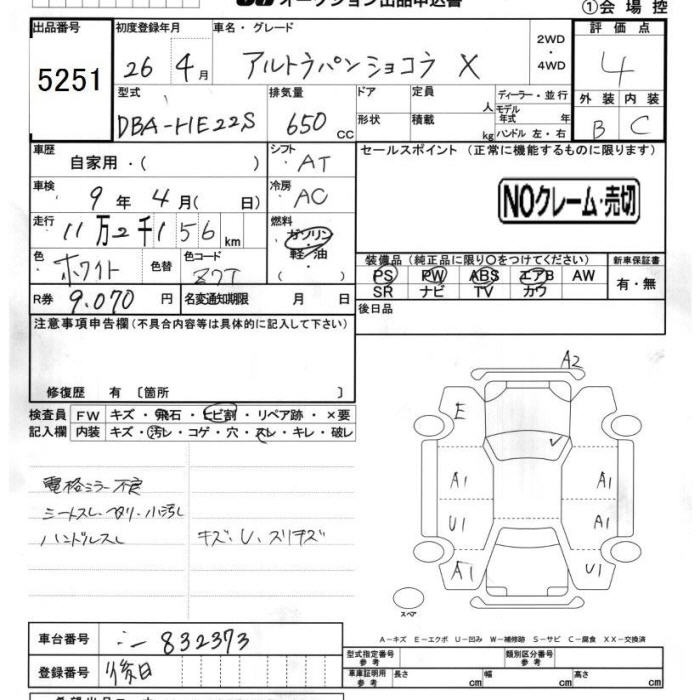 オークション出品申込書
①会場控
出品番号 初度登録年月 車名・グレード 2WD・4WD 評価点
5251 26 4月 アルトラパンショコラ X 4
型式 排気量 ドア 定員 人 ディーラー・並行 外装 内装
DBA-HE22S 650 CC 形状 積載 kg モデル年式 年 ハンドル 左・右 B C
車歴 自家用・( ) シフト AT セールスポイント (正常に機能するものに限ります)
車検 9年 4月( 日) 冷房 AC NOクレーム・売切
走行 11万2千156km 燃料 ガソリン 軽・油 ・( )
色 ホワイト 色替 色コード Z7T
装備品(純正品に限り○をつけてください) 新車保証書
PS PW ABS エアB AW 有・無
SR ナビ TV カワ
R券 9.070円 名変通知期限 月 日 後日品
注意事項申告欄(不具合内容等は具体的に記入して下さい)
修復歴 有 〔箇所 〕
検査員 FW キズ・飛石・ヒビ割・リペア跡・×要
記入欄 内装 キズ・汚レ・コゲ・穴・スレ・キレ・破レ
A2
E
電格ミラー不良 A1 A1
シートスレ・ヘタリ・小汚し U1 A1
ハンドルスレ キズ・U・スリキズ
A1 U1
スペア
A-キズ E-エクボ U-凹み W-補修跡 S-サビ C-腐食 XX-交換済
車台番号 832373 型式指定番号 参考 類別区分番号 参考
登録番号 後日 車庫証明用 参考 長さ cm 幅 cm 高さ cm